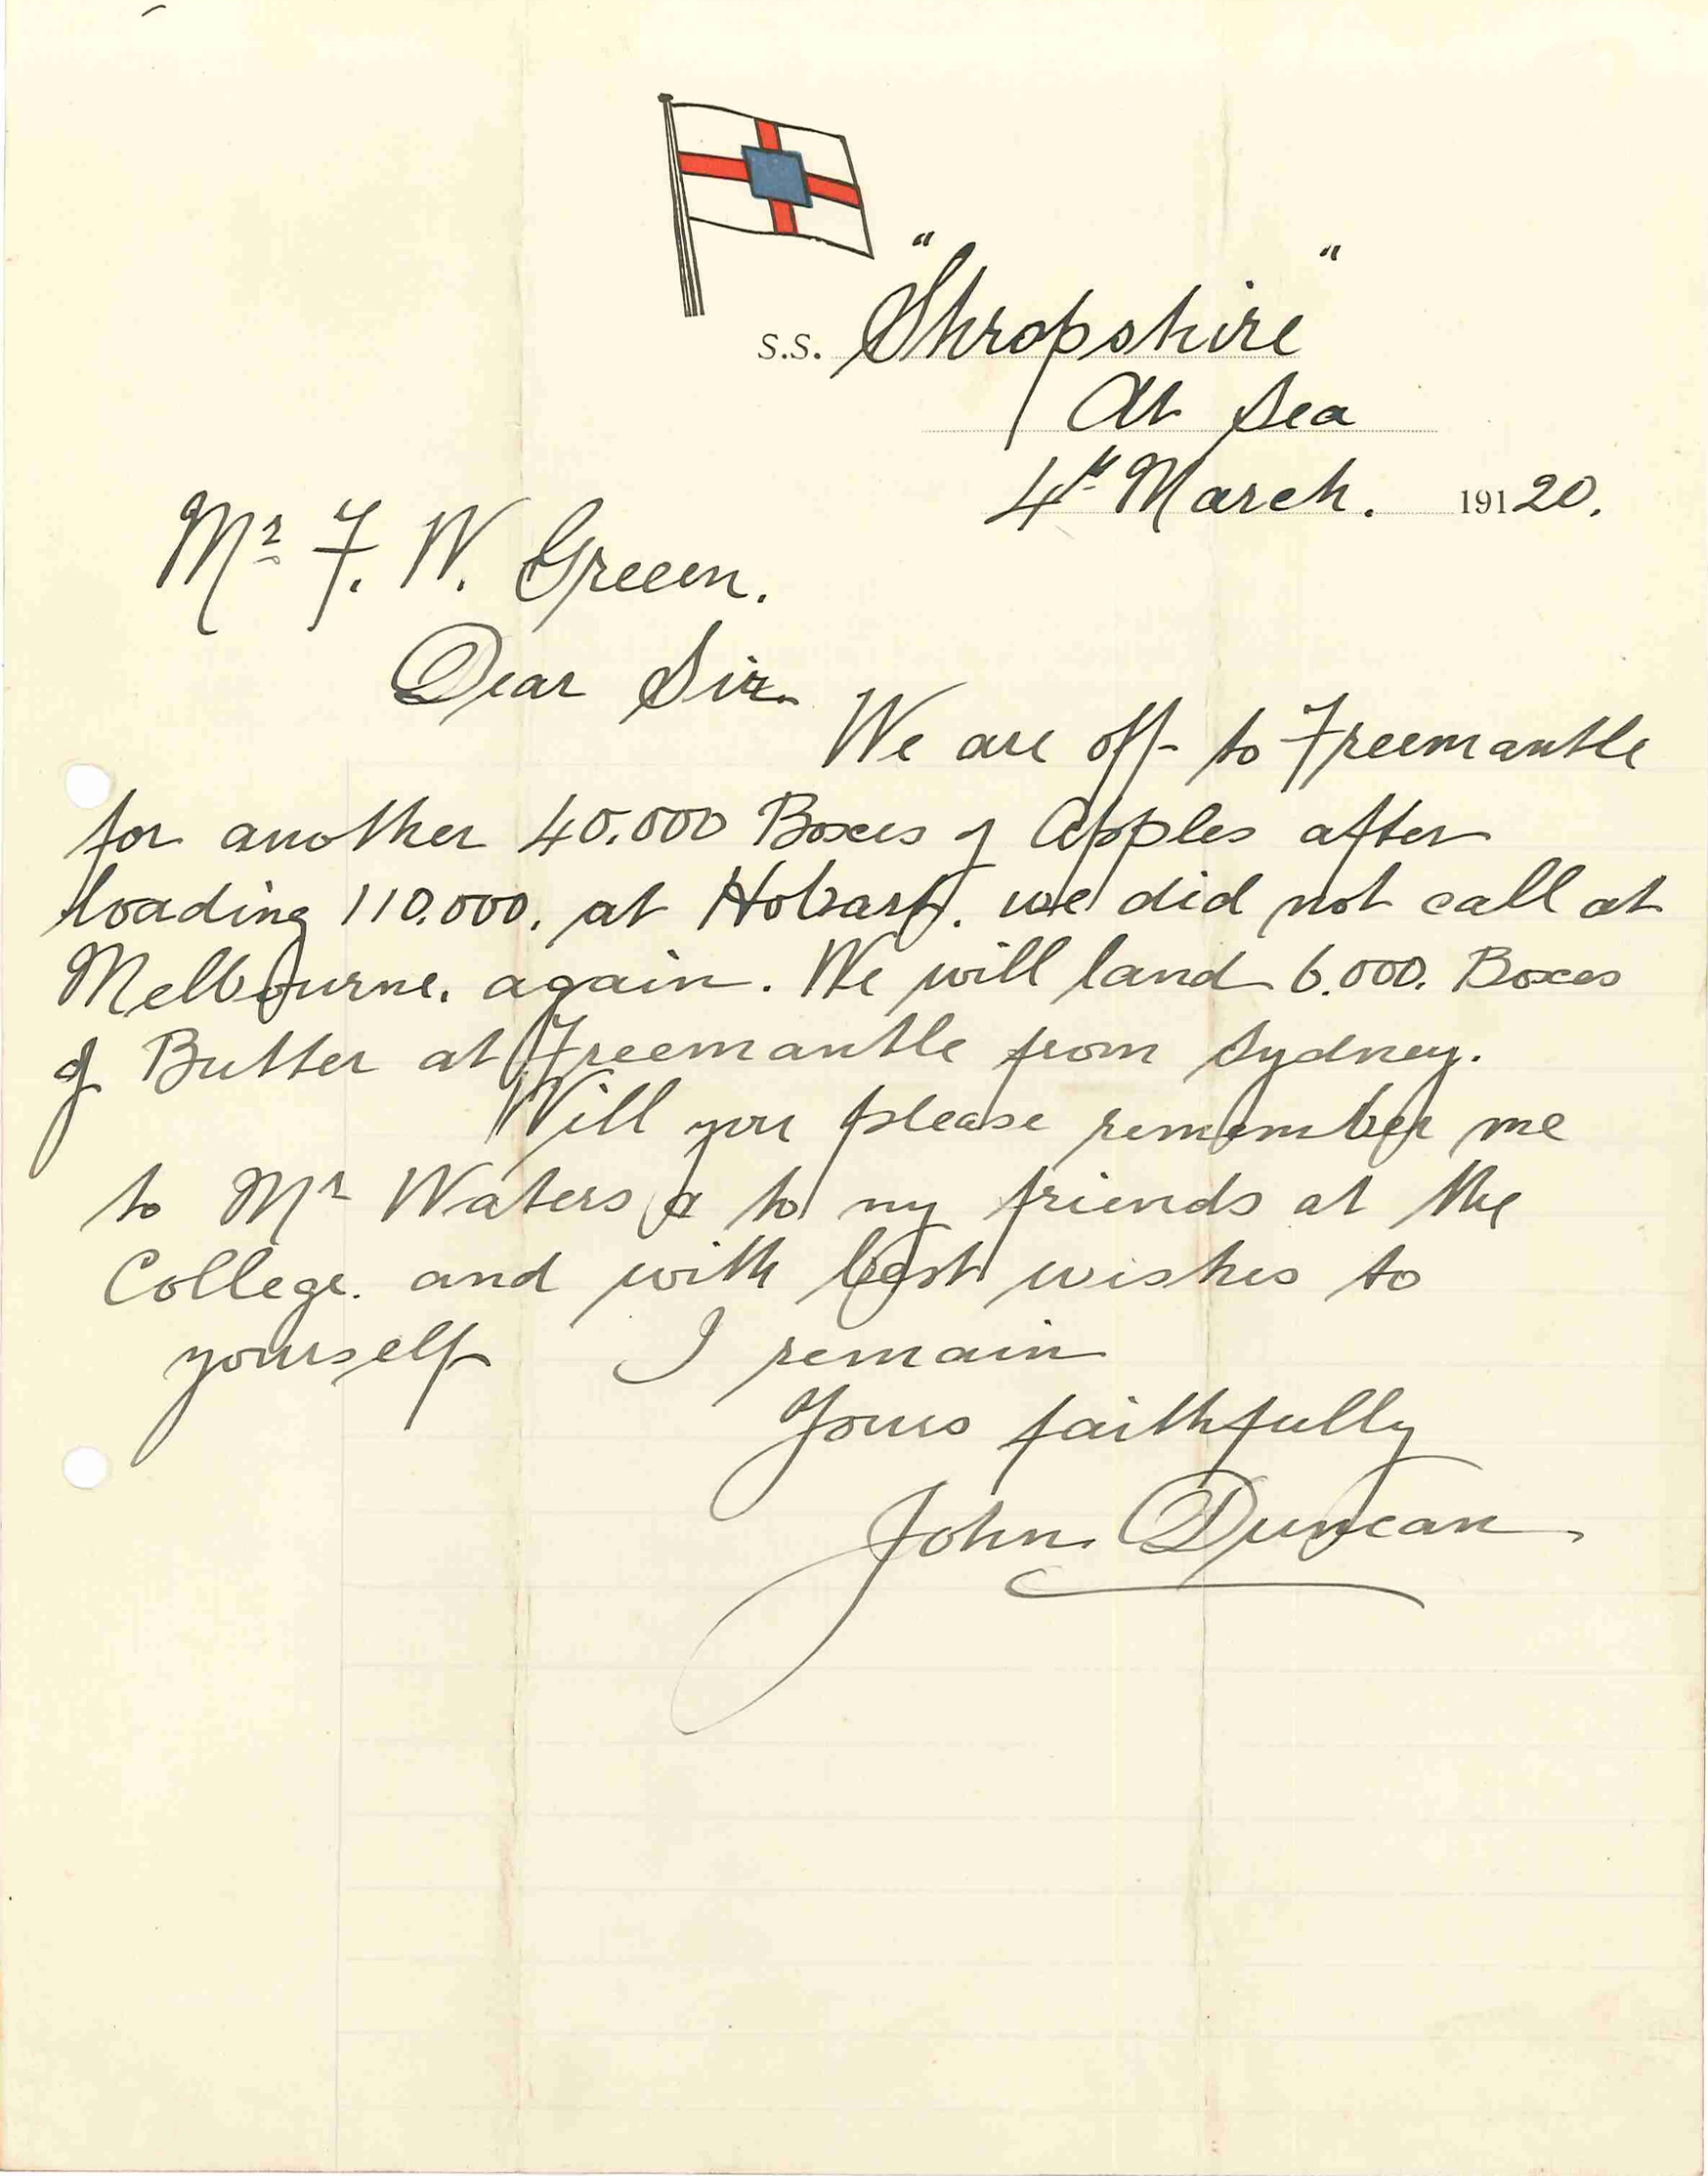 S.S. "Shropshire"
At Sea
4th March. 19120.
Mr F. W. Greeen.
Dear Sir.
We are off to Freemantle
for another 40.000 Boxes of Apples after
loading 110.000. at Hobart. we did not call at
Melbourne. again. We will land 6.000. Boxes
of Butter at Freemantle from Sydney.
Will you please remember me
to Mr Waters & to my friends at the
College. and with best wishes to
yourself I remain
Yours faithfully
John Duncan